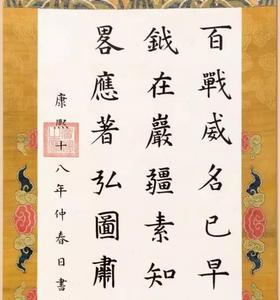 百戰威名已早
鉞在巖疆素知
畧應著弘圖肅
康熙十八年仲春日書